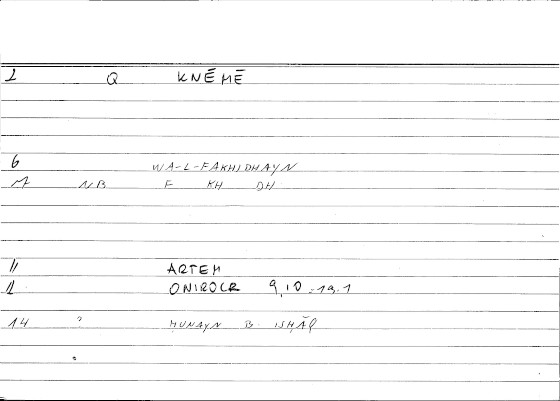 1 Q KNĒMĒ
6 WA-L-FAKHIDHAYN
NB F KH DH
11 ARTEM
12 ONIROCR 9,10-19.1
14 ḤUNAYN B. ISḤĀQ